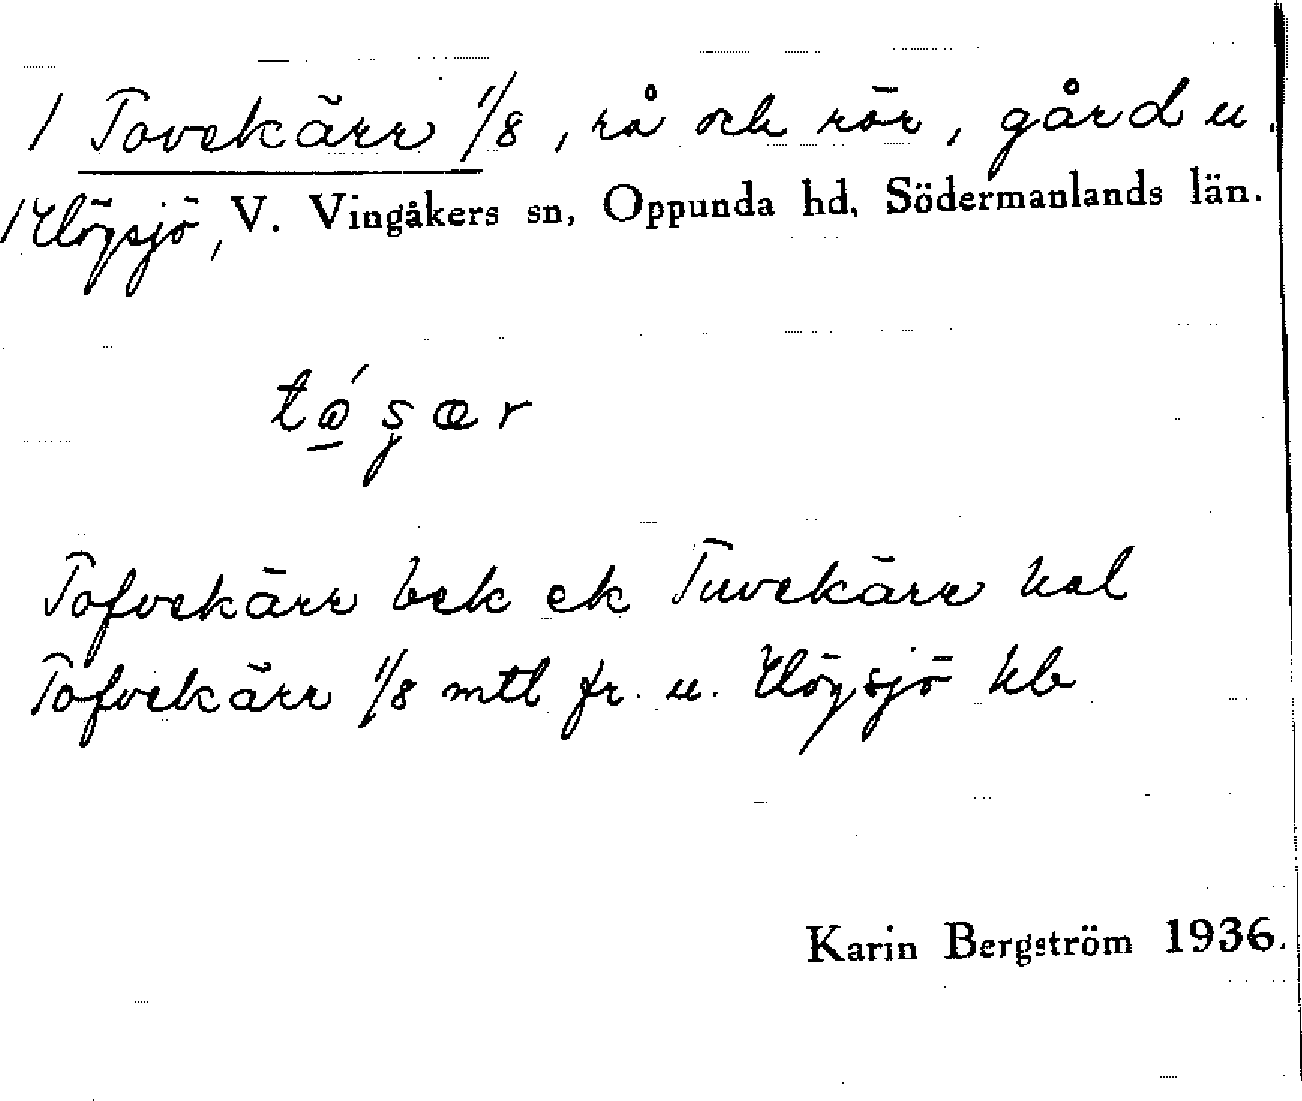 / Tovekärr 1/8, rå och rör, gård u.
/ Högsjö, V. Vingåkers sn, Oppunda hd, Södermanlands län.
Tofvekärr bek ek Tuvekärr hal
Tofvekärr 1/8 mtl fr. u. Högsjö kb
Karin Bergström 1936.